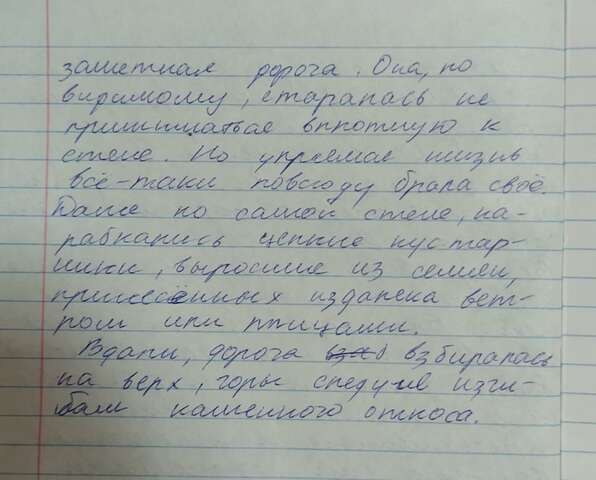 заметная дорога. Она, по
видимому, старалась не
примыкать вплотную к
стене. Но упрямая жизнь
всё-таки повсюду брала своё.
Даже по самой стене, ка-
рабкались цепкие кустар-
ники, выросшие из семян,
принесённых издалека вет-
ром или птицами.
Вдали, дорога взбиралась
на верх, горы следуя изги-
бам каменного откоса.